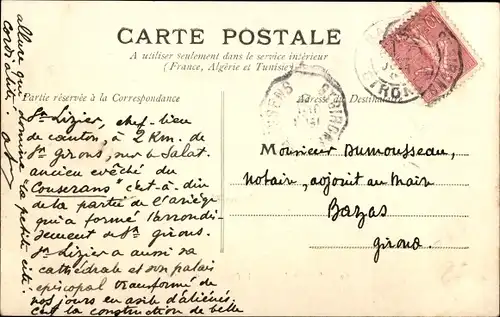 CARTE POSTALE
A utiliser seulement dans le service intérieur
(France, Algérie et Tunisie)
Partie réservée à la Correspondance
Adresse du Destinataire
St Lizier, chef-lieu
de canton, à 2 Km. de
St Girons, sur le Salat.
ancien evêché du
Couserans c'est-à-dire
de la partie de l'ariège
qui a formé l'arrondis-
sement de St Girons.
St Lizier a aussi sa
cathédrale et son palais
episcopal transformé de
nos jours en asile d'aliénés.
C'est la construction de belle
allure qui domine la petite cité.
Cordialité.
Monsieur Dumousseau,
notaire, adjoint au Maire
Bazas
Gironde